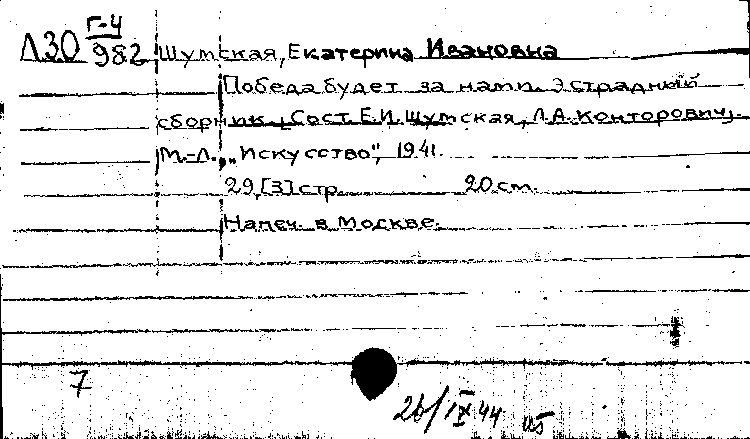 Г-4
Л30 982 Шумская, Екатерина Ивановна
Победа будет за нами. Эстрадный
сборник. (Сост. Е.И. Шумская, Л.А. Конторович).
М.-Л., „Искусство", 1941.
29,[3] стр. 20 см.
Напеч. в Москве.
7
26/IX 44